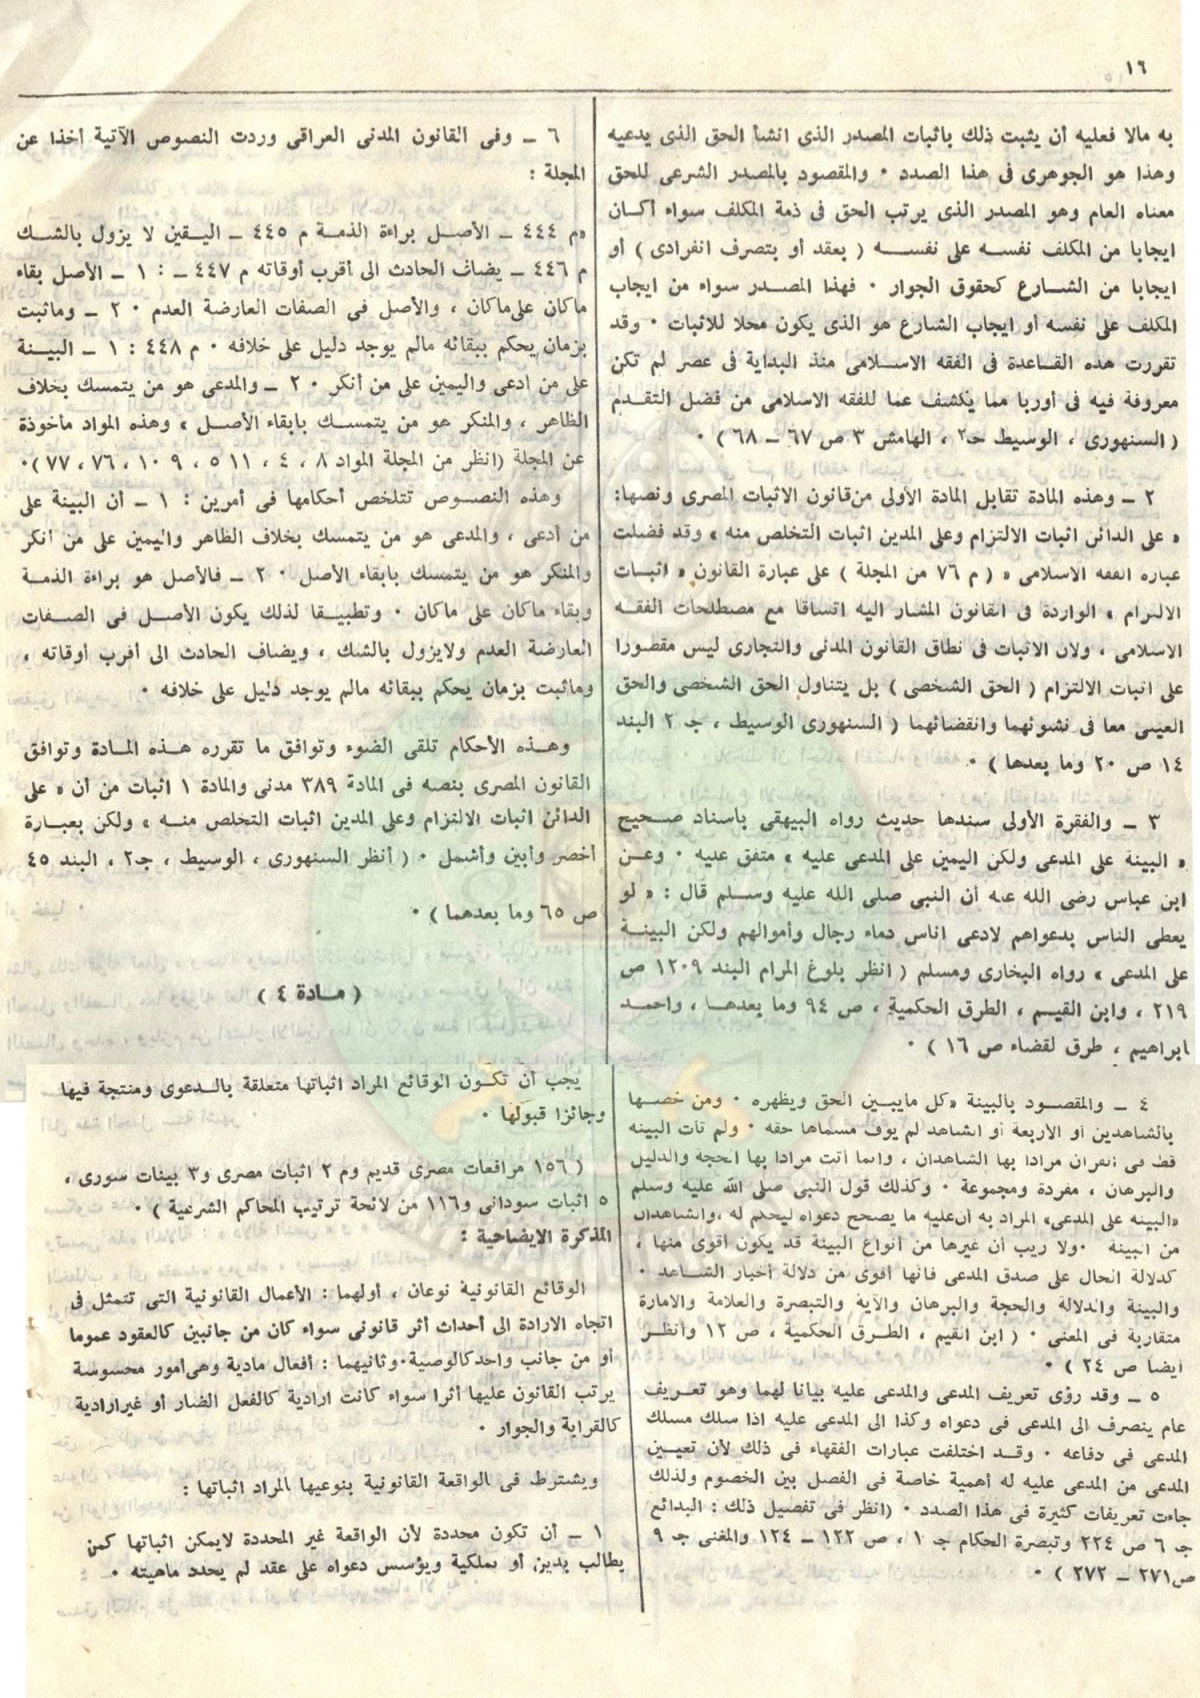 ١٦
به مالا فعليه أن يثبت ذلك باثبات المصدر الذى انشأ الحق الذى يدعيه
وهذا هو الجوهرى فى هذا الصدد ٠ والمقصود بالمصدر الشرعى للحق
معناه العام وهو المصدر الذى يرتب الحق فى ذمة المكلف سواء أكان
ايجابا من المكلف نفسه على نفسه ( بعقد أو بتصرف انفرادى ) أو
ايجابا من الشارع كحقوق الجوار ٠ فهذا المصدر سواء من ايجاب
المكلف على نفسه أو ايجاب الشارع هو الذى يكون محلا للاثبات ٠ وقد
تقررت هذه القاعدة فى الفقه الاسلامى منذ البداية فى عصر لم تكن
معروفة فيه فى أوربا مما يكشف عما للفقه الاسلامى من فضل التقدم
( السنهورى ، الوسيط حـ٢ ، الهامش ٣ ص ٦٧ – ٦٨ ) ٠
٢ – وهذه المادة تقابل المادة الأولى من قانون الاثبات المصرى ونصها:
« على الدائن اثبات الالتزام وعلى المدين اثبات التخلص منه » وقد فضلت
عباره الفقه الاسلامى « ( م ٧٦ من المجلة ) على عبارة القانون « اثبات
الالتزام » الواردة فى القانون المشار اليه اتساقا مع مصطلحات الفقه
الاسلامى ، ولان الاثبات فى نطاق القانون المدنى والتجارى ليس مقصورا
على اثبات الالتزام ( الحق الشخصى ) بل يتناول الحق الشخصى والحق
العينى معا فى نشوئهما وانقضائهما ( السنهورى الوسيط ، جـ ٢ البند
١٤ ص ٢٠ وما بعدها ) ٠
٣ – والفقرة الأولى سندها حديث رواه البيهقى باسناد صحيح
« البينة على المدعى ولكن اليمين على المدعى عليه » متفق عليه ٠ وعن
ابن عباس رضى الله عنه أن النبى صلى الله عليه وسلم قال : « لو
يعطى الناس بدعواهم لادعى اناس دماء رجال وأموالهم ولكن البينة
على المدعى » رواه البخارى ومسلم ( انظر بلوغ المرام البند ١٢٠٩ ص
٢١٩ ، وابن القيم ، الطرق الحكمية ، ص ٩٤ وما بعدها ، واحمد
ابراهيم ، طرق لقضاء ص ١٦ ) ٠
٤ – والمقصود بالبينة «كل مايبين الحق ويظهره ٠ ومن خصها
بالشاهدين أو الاربعة أو الشاهد لم يوف مسماها حقه ٠ ولم تأت البينه
قط فى القران مرادا بها الشاهدان ، وانما أتت مرادا بها الحجة والدليل
والبرهان ، مفردة ومجموعة ٠ وكذلك قول النبى صلى الله عليه وسلم
«البينه على المدعى» المراد به أن عليه ما يصحح دعواه ليحكم له ، والشاهدان
من البينة ٠ ولا ريب أن غيرها من أنواع البينة قد يكون أقوى منها ،
كدلالة الحال على صدق المدعى فانها أقوى من دلالة أخبار الشاهد ٠
والبينة والدلالة والحجة والبرهان والآية والتبصرة والعلامة والامارة
متقاربة فى المعنى ٠ ( ابن القيم ، الطرق الحكمية ، ص ١٢ وانظر
ايضا ص ٢٤ ) ٠
٥ – وقد رؤى تعريف المدعى والمدعى عليه بيانا لهما وهو تعريف
عام ينصرف الى المدعى فى دعواه وكذا الى المدعى عليه اذا سلك مسلك
المدعى فى دفاعه ٠ وقد اختلفت عبارات الفقهاء فى ذلك لأن تعيين
المدعى من المدعى عليه له أهمية خاصة فى الفصل بين الخصوم ولذلك
جاءت تعريفات كثيرة فى هذا الصدد ٠ (انظر فى تفصيل ذلك : البدائع
جـ ٦ ص ٢٢٤ وتبصرة الحكام جـ ١ ، ص ١٢٢ – ١٢٤ والمغنى جـ ٩
ص ٢٧١ – ٢٧٢ ) ٠
٦ – وفى القانون المدنى العراقى وردت النصوص الآتية أخذا عن
المجلة :
«م ٤٤٤ – الأصل براءة الذمة م ٤٤٥ – اليقين لا يزول بالشك
م ٤٤٦ – يضاف الحادث الى أقرب أوقاته م ٤٤٧ – : ١ – الأصل بقاء
ماكان على ماكان ، والأصل فى الصفات العارضة العدم ٠ ٢ – وماثبت
بزمان يحكم ببقائه مالم يوجد دليل على خلافه ٠ م ٤٤٨ : ١ – البينة
على من ادعى واليمين على من أنكر ٠ ٢ – والمدعى هو من يتمسك بخلاف
الظاهر ، والمنكر هو من يتمسك بابقاء الأصل » وهذه المواد مأخوذة
عن المجلة (انظر من المجلة المواد ٨ ، ٤ ، ١١ ٥ ، ٩ ١٠ ، ٧٦ ، ٧٧)٠
وهذه النصوص تتلخص أحكامها فى أمرين : ١ – أن البينة على
من أدعى ، والمدعى هو من يتمسك بخلاف الظاهر واليمين على من أنكر
والمنكر هو من يتمسك بابقاء الأصل ٠ ٢ – فالأصل هو براءة الذمة
وبقاء ماكان على ماكان ٠ وتطبيقا لذلك يكون الأصل فى الصفات
العارضة العدم ولايزول بالشك ، ويضاف الحادث الى أقرب أوقاته ،
وماثبت بزمان يحكم ببقائه مالم يوجد دليل على خلافه ٠
وهذه الأحكام تلقى الضوء وتوافق ما تقرره هذه المادة وتوافق
القانون المصرى بنصه فى المادة ٣٨٩ مدنى والمادة ١ اثبات من أن « على
الدائن اثبات الالتزام وعلى المدين اثبات التخلص منه » ولكن بعبارة
أخصر وأبين وأشمل ٠ ( أنظر السنهورى ، الوسيط ، جـ٢ ، البند ٤٥
ص ٦٥ وما بعدهما ) ٠
( مادة ٤ )
يجب أن تكون الوقائع المراد اثباتها متعلقة بالدعوى ومنتجة فيها
وجائزا قبولها ٠
( ١٥٦ مرافعات مصرى قديم وم ٢ اثبات مصرى و٣ بينات سورى ،
٥ اثبات سودانى و١١٦ من لائحة ترتيب المحاكم الشرعية ) ٠
المذكرة الايضاحية :
الوقائع القانونية نوعان ، أولهما : الأعمال القانونية التى تتمثل فى
اتجاه الارادة الى أحداث أثر قانونى سواء كان من جانبين كالعقود عموما
أو من جانب واحد كالوصية٠ وثانيهما : أفعال مادية وهى أمور محسوسة
يرتب القانون عليها أثرا سواء كانت ارادية كالفعل الضار أو غير ارادية
كالقرابة والجوار ٠
ويشترط فى الواقعة القانونية بنوعيها المراد اثباتها :
١ – أن تكون محددة لأن الواقعة غير المحددة لايمكن اثباتها كمن
يطالب بدين أو بملكية ويؤسس دعواه على عقد لم يحدد ماهيته ٠